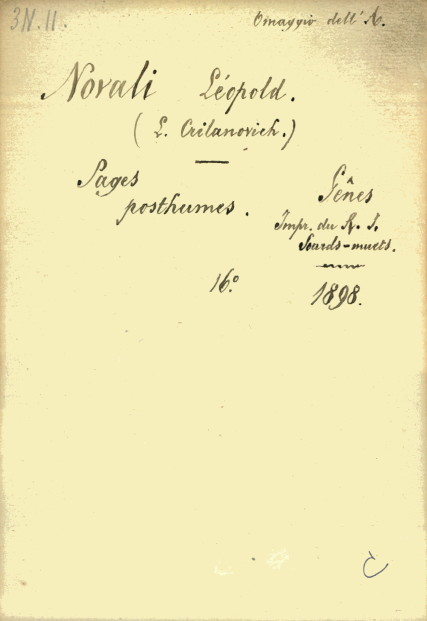 3N.11.
Omaggio dell'A.
Novali Léopold.
(L. Crilanovich.)
Pages
posthumes.
Gênes
Impr. du R. I.
Sourds-muets.
16°
1898.